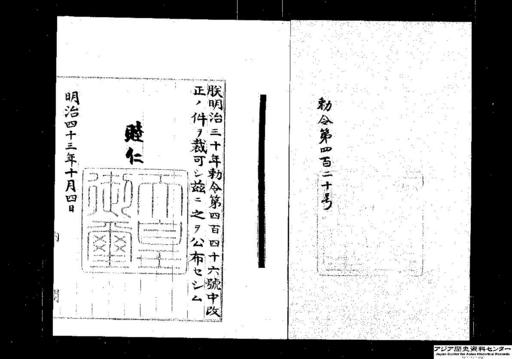 勅令第四百二十号
朕明治三十年勅令第四百四十六號中改
正ノ件ヲ裁可シ茲ニ之ヲ公布セシム
睦仁
天皇
御璽
明治四十三年十月四日
アジア歴史資料センター
Japan Center for Asian Historical Records